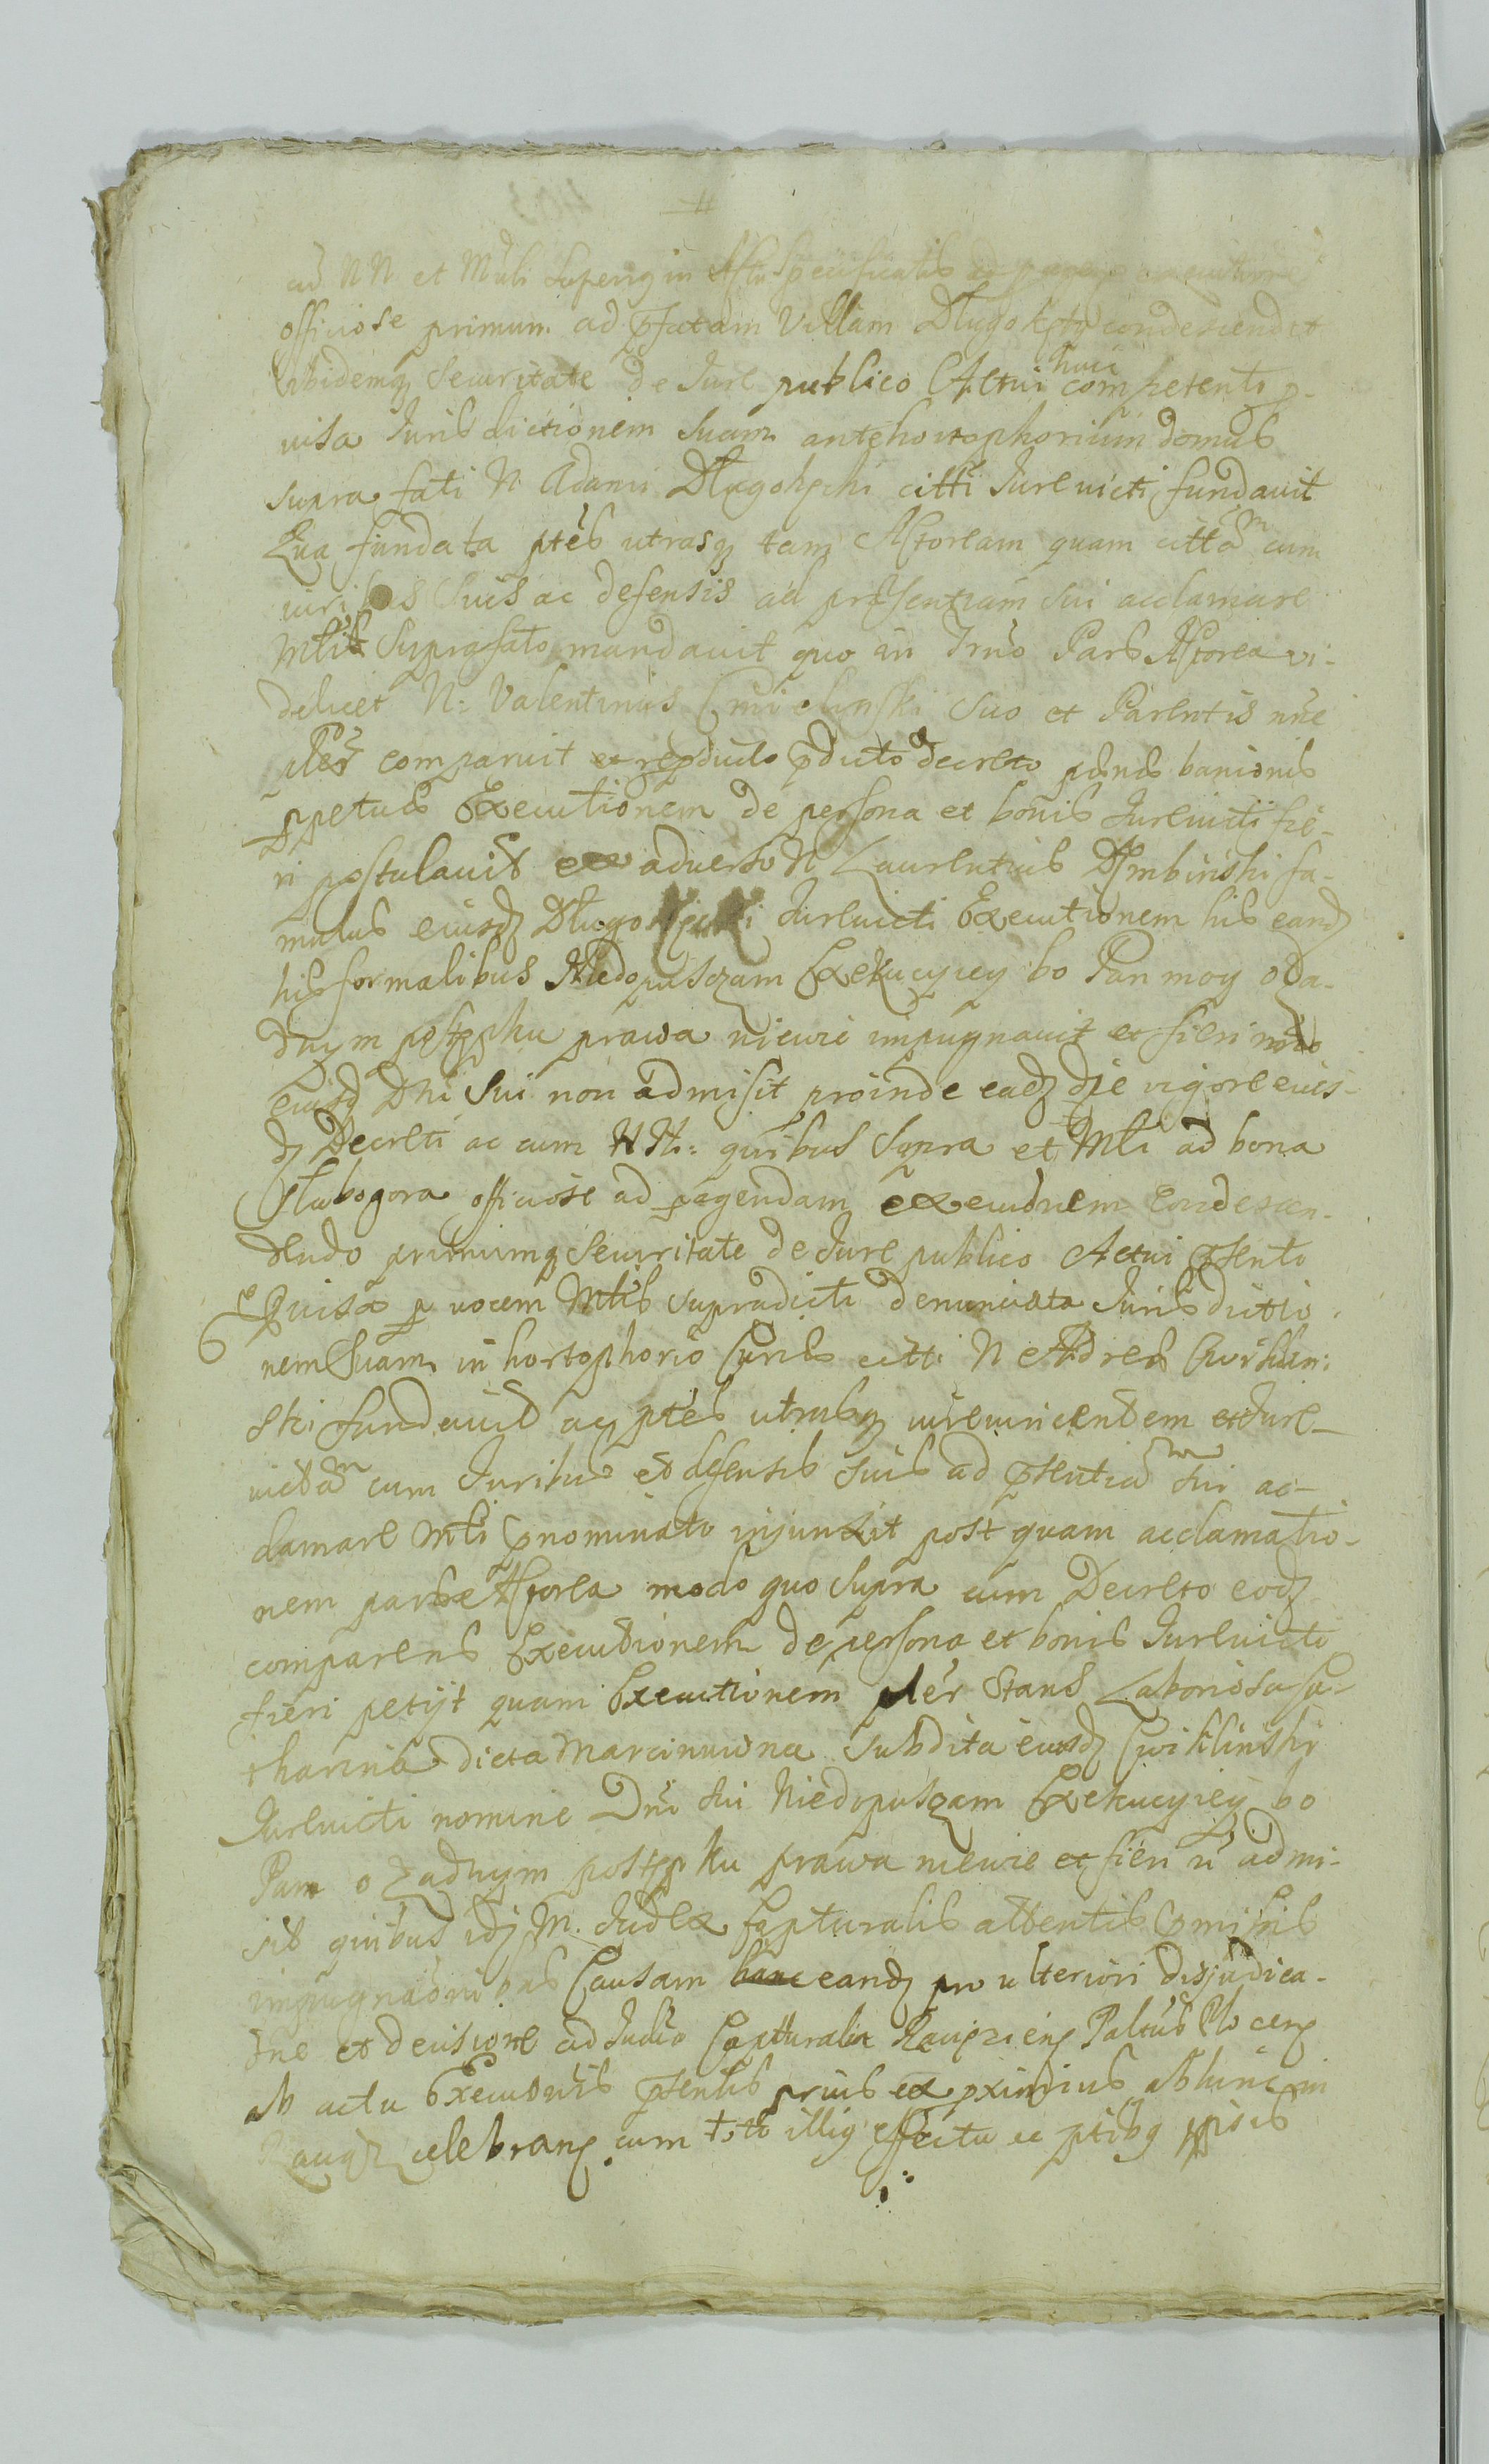 ad NN et Mnli superg in Actu Specificatis ad
officiose primum ad pfatam Villam Dlugokęty condescendit
Ibidemq securitate de Jure publico Actui huic competenti p-
uisa Jurisdictionem suam ante hortophorium domus
supra fati N Adami Dlugokęcki citti Jurevicti fundavit
Qua fundata ptes utrasq tam Actoream quam cittam cum
iuribus suis ac defensis ad præsentiam sui acclamare
Mtli suprafato mandavit quo in Trno Pars Actorea vi-
delicet N: Valentinus Cmielinski suo et Parentis nne
pler comparuit et reproducto pducto decreto pænis banionis
ppetuæ Executionem de persona et bonis Jurevicti fie-
ri postulavit ex adverso N Laurentius Dembinski fa-
mulus eiusd Dlugokęcki Jurevicti Executionem his eand
his formalibus Niedopusczam Exekucyiey bo Pan moy o ża-
dnym postępku prawa niewie impugnavit et fieri nne
eiusd Dni sui non admisit proinde ead die vigore eius-
d Decreti ac cum NN: quibus supra et Mtli ad bona
Slubogora officiose ad pagendam exeuctnem condescen-
dendo primumq securitate de Jure publico Actui psenti
puisa p vocem Mtlis supradicti denunciata Jurisdictio-
nem suam in hortophorio Curis citti N Andreæ Cwiklin-
ski fundavit ac ptes utrasq iurevincentem et Jure-
victam cum Juribus et defensis suis ad psentiam sui ac-
clamare Mtli pnominato injunxit post quam acclamatio-
nem pars Actorea modo quo supra cum Decreto eod
comparens Executionem de persona et bonis Jurevicti
fieri petijt quam Executionem pler stans Laboriosa Ca-
tharina dicta Marcinowna subdita eiusd Cwiklinski
Jurevicti nomine Dni sui Niedopusczam Exekucyiey bo
Pan o żadnym postępku prawa niewie et fieri n admi-
sit quibus id M. Judex Capturalis attentis omibis
impugnaonibus Causam hanc eand pro ulteriori disjudica-
one et decisione ad Judia Capturalia Raciążien Paltus Plocen
ab actu Execuonis psentis prius et pximius abhinc in
Raciąż celebran cum toto illig effectu ac ptibq ipsis